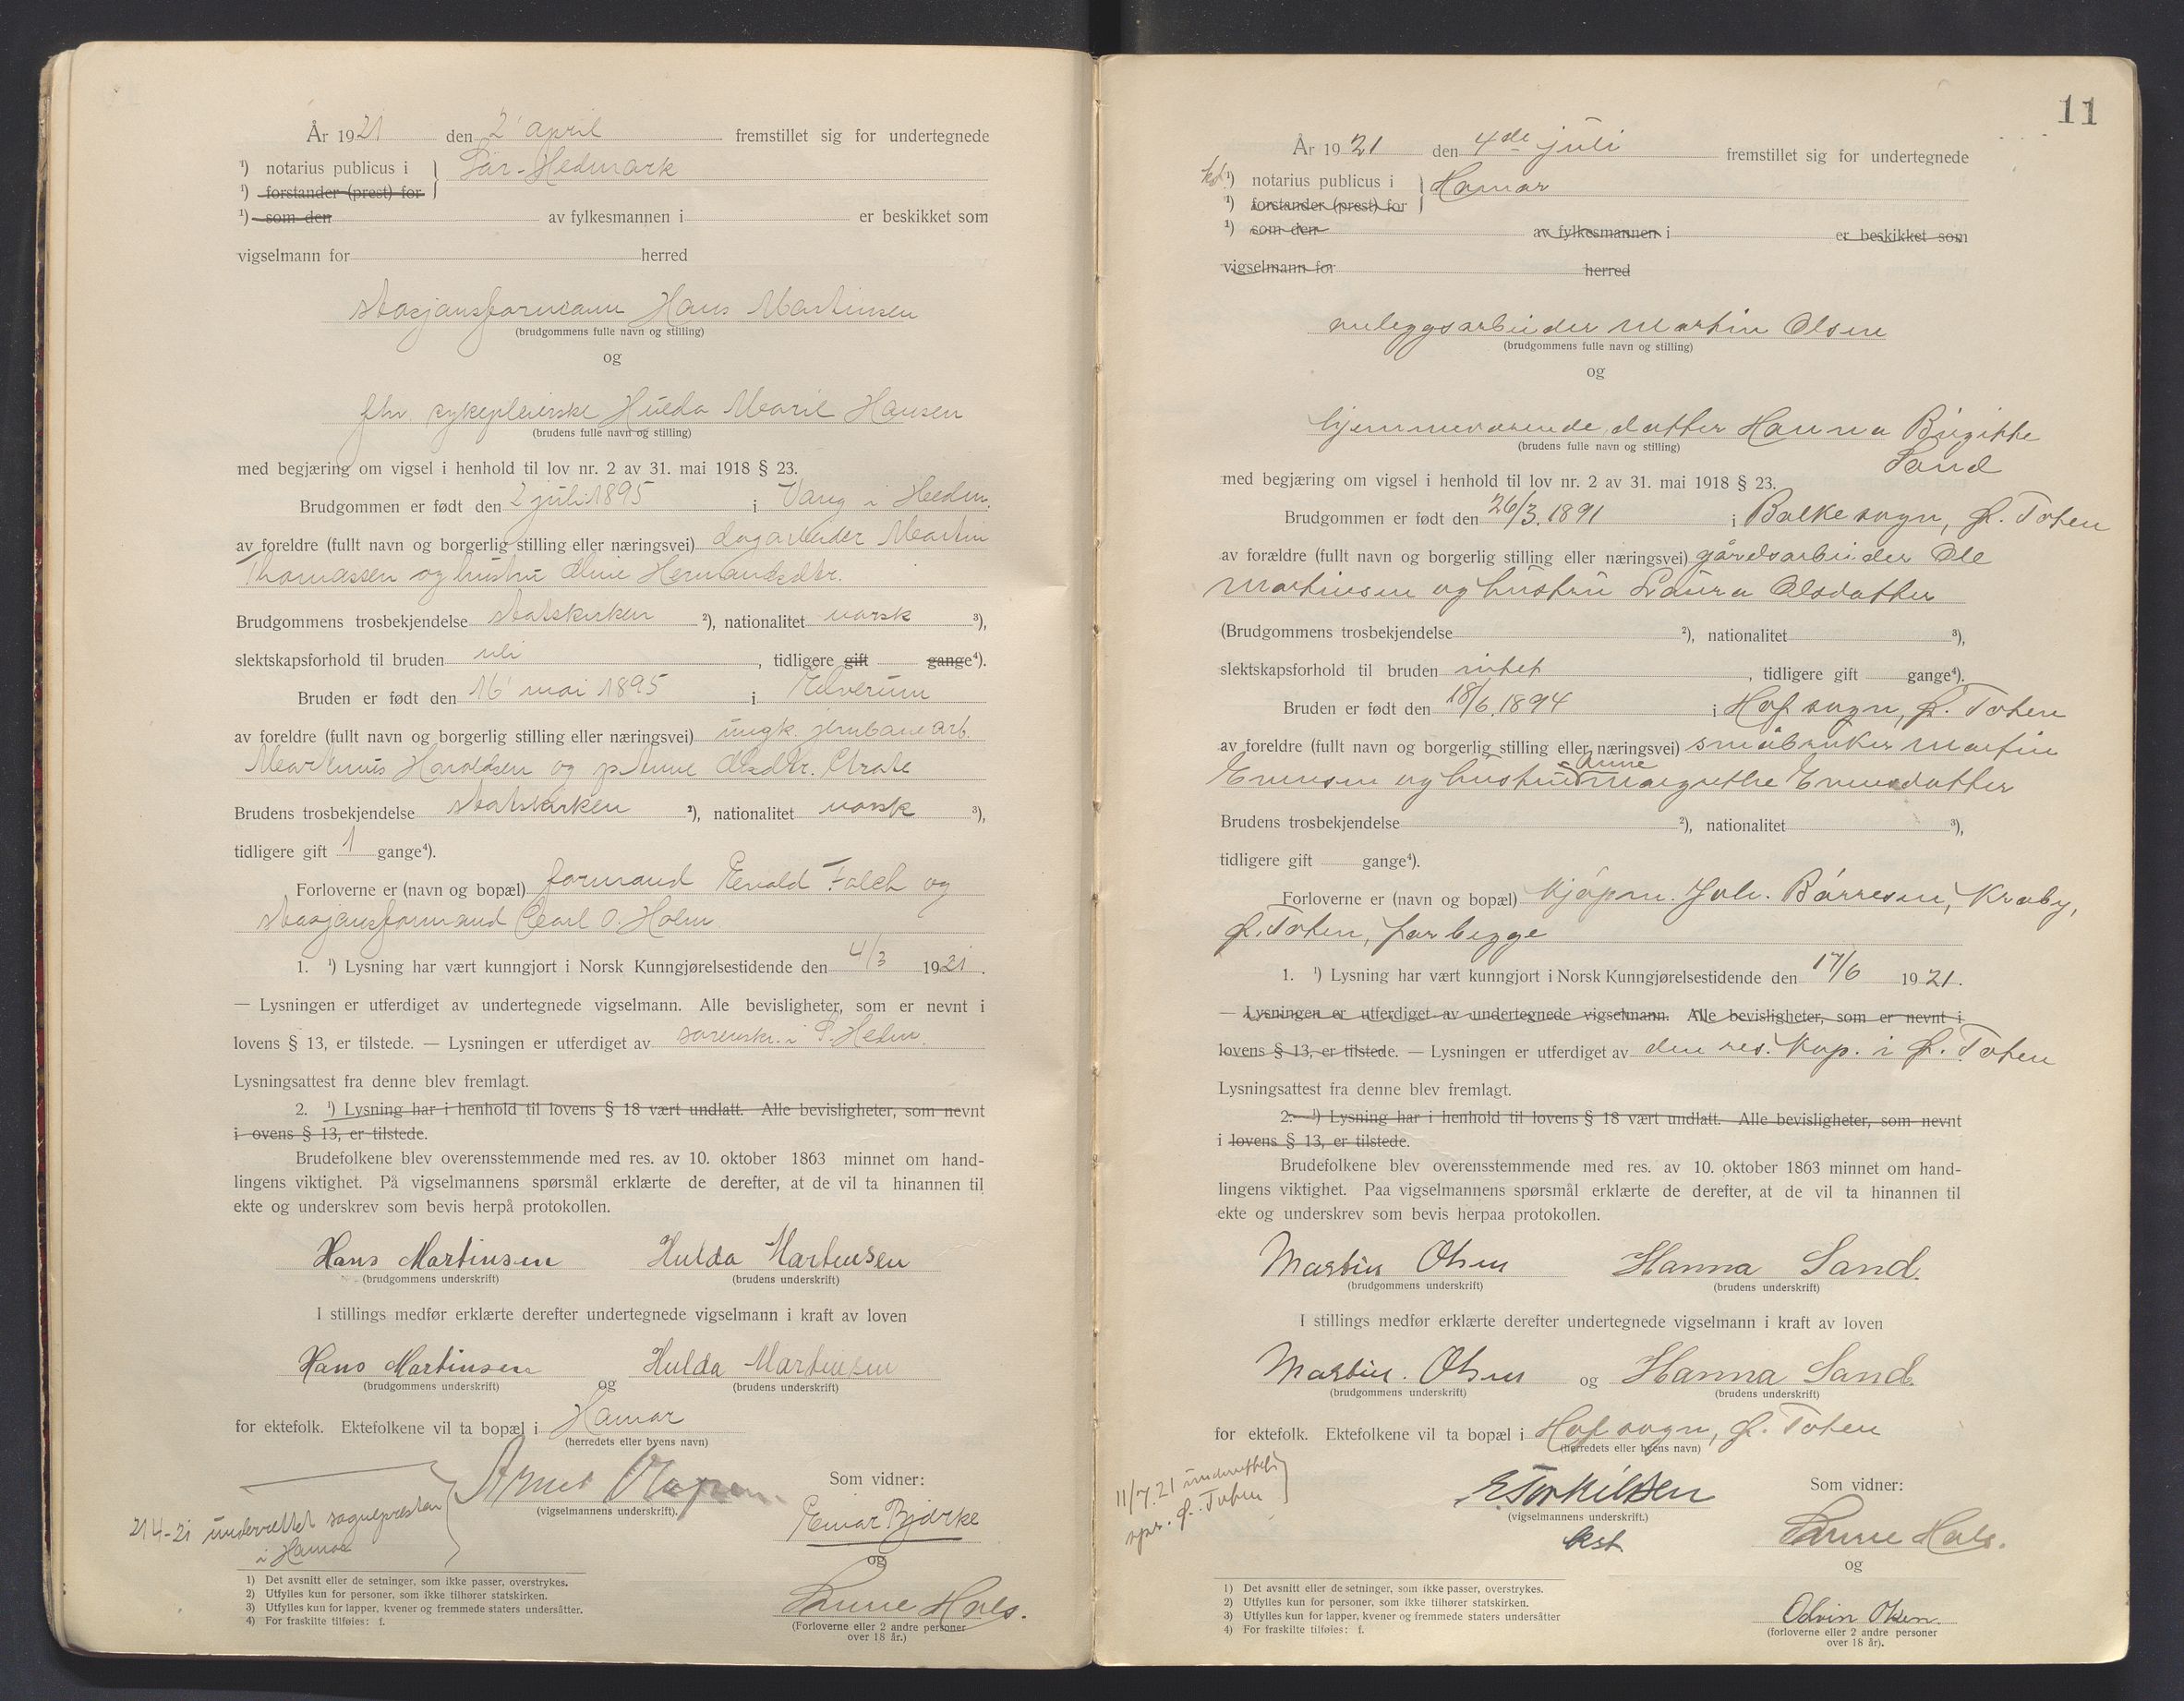 År 1921 den 2' april fremstillet sig for undertegnede
¹) notarius publicus i } Sør-Hedmark
¹) forstander (prest) for
¹) som den av fylkesmannen i er beskikket som
vigselmann for herred
stasjonsformann Hans Martinsen
(brudgommens fulle navn og stilling)
og
fhv. sykepleierske Hulda Marie Hansen
(brudens fulle navn og stilling)
med begjæring om vigsel i henhold til lov nr. 2 av 31. mai 1918 § 23.
Brudgommen er født den 2 juli 1895 i Vang i Hedm.
av foreldre (fullt navn og borgerlig stilling eller næringsvei) dagarbeider Martin
Thomassen og hustru Oline Hermandsdtr.
Brudgommens trosbekjendelse statskirken ²), nationalitet norsk ³),
slektskapsforhold til bruden , tidligere gift gange⁴).
Bruden er født den 16' mai 1895 i Elverum
av foreldre (fullt navn og borgerlig stilling eller næringsvei) ungk. jernbanearb.
Martinus Haroldsen og p. Anne Olsdtr.
Brudens trosbekjendelse statskirken ²), nationalitet norsk ³),
tidligere gift 1 gange⁴).
Forloverne er (navn og bopæl) formand Evald Falch og
stasjonsformand Carl O. Holm
1. ¹) Lysning har vært kunngjort i Norsk Kunngjørelsestidende den 4/3 1921.
— Lysningen er utferdiget av undertegnede vigselmann. Alle bevisligheter, som er nevnt i
lovens § 13, er tilstede. — Lysningen er utferdiget av sorenskr. i S. Hedm.
Lysningsattest fra denne blev fremlagt.
2. ¹) Lysning har i henhold til lovens § 18 vært undlatt. Alle bevisligheter, som nevnt
i ovens § 13, er tilstede.
Brudefolkene blev overensstemmende med res. av 10. oktober 1863 minnet om hand-
lingens viktighet. På vigselmannens spørsmål erklærte de derefter, at de vil ta hinannen til
ekte og underskrev som bevis herpå protokollen.
Hans Martinsen Hulda Martinsen
(brudgommens underskrift) (brudens underskrift)
I stillings medfør erklærte derefter undertegnede vigselmann i kraft av loven
Hans Martinsen og Hulda Martinsen
(brudgommens underskrift) (brudens underskrift)
for ektefolk. Ektefolkene vil ta bopæl i Hamar
(herredets eller byens navn)
Som vidner:
(vigselmannens underskrift).
Einar Bjørke
21 4-21 underrettet sognepresten
i Hamar
og
Hals.
(Forloverne eller 2 andre personer
over 18 år.)
1) Det avsnitt eller de setninger, som ikke passer, overstrykes.
2) Utfylles kun for personer, som ikke tilhører statskirken.
3) Utfylles kun for lapper, kvener og fremmede staters undersåtter.
4) For fraskilte tilføies: f.
11
År 1921 den 4de juli fremstillet sig for undertegnede
kst. ¹) notarius publicus i } Hamar
¹) forstander (prest) for
¹) som den av fylkesmannen i er beskikket som
vigselmann for herred
anleggsarbeider Martin Olsen
(brudgommens fulle navn og stilling)
og
hjemmeværende datter Hanna Birgitte
(brudens fulle navn og stilling)
Sand
med begjæring om vigsel i henhold til lov nr. 2 av 31. mai 1918 § 23.
Brudgommen er født den 26/3. 1891 i Balke sogn, Ø. Toten
av forældre (fullt navn og borgerlig stilling eller næringsvei) gårdsarbeider Ole
Martinsen og hustru Laura Olsdatter
(Brudgommens trosbekjendelse ²), nationalitet ³),
slektskapsforhold til bruden intet , tidligere gift gange⁴).
Bruden er født den 18/6. 1894 i Hof sogn, Ø. Toten
av foreldre (fullt navn og borgerlig stilling eller næringsvei) småbruker Martin
Evensen og hustru Anne Margrethe Evensdatter
Brudens trosbekjendelse ²), nationalitet ³),
tidligere gift gange⁴).
Forloverne er (navn og bopæl) kjøpm. Joh. Børresen, Kraby,
Ø. Toten, for begge
1. ¹) Lysning har vært kunngjort i Norsk Kunngjørelsestidende den 17/6 1921.
— Lysningen er utferdiget av undertegnede vigselmann. Alle bevisligheter, som er nevnt i
lovens § 13, er tilstede. — Lysningen er utferdiget av den res. kap. i Ø. Toten
Lysningsattest fra denne blev fremlagt.
2. ¹) Lysning har i henhold til lovens § 18 vært undlatt. Alle bevisligheter, som nevnt
i lovens § 13, er tilstede.
Brudefolkene blev overensstemmende med res. av 10. oktober 1863 minnet om hand-
lingens viktighet. Paa vigselmannens spørsmål erklærte de derefter, at de vil ta hinannen til
ekte og underskrev som bevis herpaa protokollen.
Martin Olsen Hanna Sand.
(brudgommens underskrift) (brudens underskrift)
I stillings medfør erklærte derefter undertegnede vigselmann i kraft av loven
Martin. Olsen og Hanna Sand.
(brudgommens underskrift) (brudens underskrift)
for ektefolk. Ektefolkene vil ta bopæl i Hof sogn, Ø. Toten
(herredets eller byens navn)
11/7.21 underrettet
spr. Ø. Toten
E Torkildsen
(vigselmannens underskrift.)
kst.
Som vidner:
Hals.
og
Odvin Olsen.
(forloverne eller 2 andre personer
over 18 år).
1) Det avsnitt eller de setninger, som ikke passer, overstrykes.
2) Utfylles kun for personer, som ikke tilhører statskirken.
3) Utfylles kun for lapper, kvener og fremmede staters undersåtter
4) For fraskilte tilføies: f.